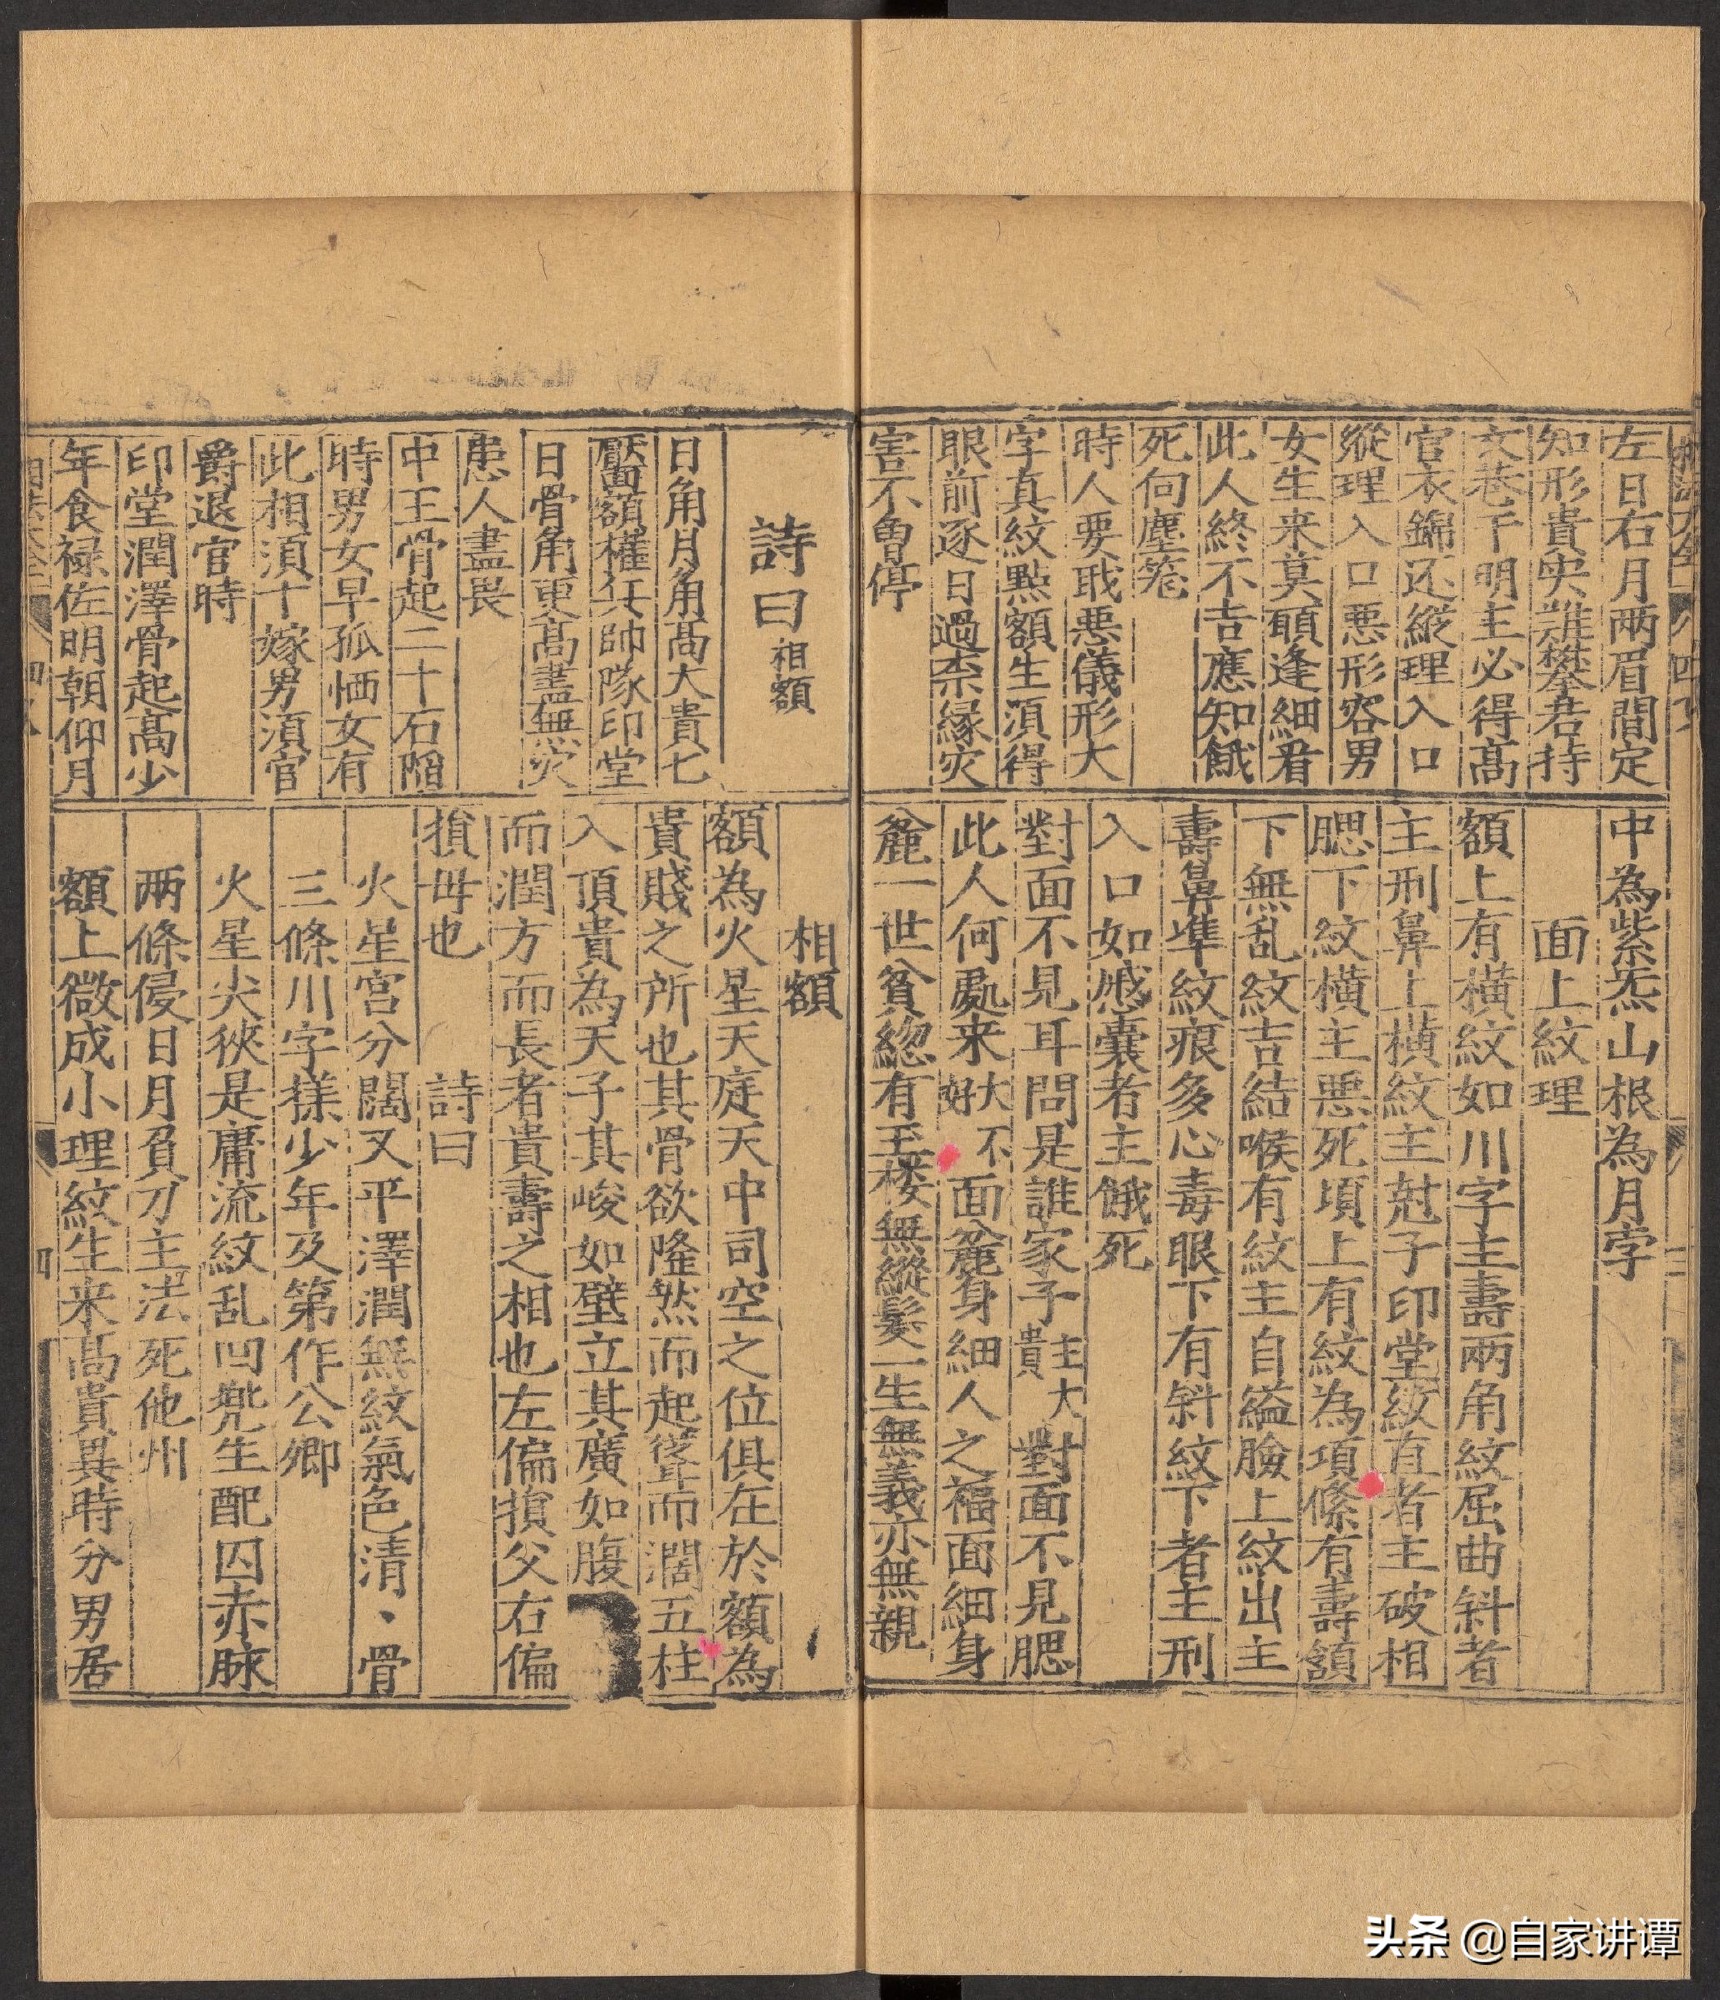 左日右月两眉間定
知形貴䆒誰攀若持
文巷千明主必得髙
官衣錦还縱理入口
縱理入口惡形容男
女生来莫頋逢細看
此人終不吉應知餓
死向塵笼
時人要戝惡儀形大
字真紋點額生湏得
眼前逐日過柰縁灾
害不魯停
中為紫炁山根為月孛
面上紋理
額上有横紋如川字主壽兩角紋屈曲斜者
主刑鼻上横紋主尅子印堂紋直者主破相
腮下紋横主惡死項上有紋為項絛有壽頷
下無乱紋吉結喉有紋主自縊臉上紋出主
壽鼻準紋痕多心毒眼下有斜紋下者主刑
入口如慼囊者主餓死
對面不見耳問是誰家子主大貴對面不見腮
此人何處来大不好面麄身細人之福面細身
麄一世貧緫有玉楼無縱髪一生無義亦無親
詩曰相額
日角月角髙大貴七
壓面額權兵帥隊印堂
日骨角更髙盡無灾
患人盡畏
中王骨起二十石陷
時男女早孤恓女有
此相湏十嫁男湏官
爵退官時
印堂潤澤骨起髙少
年食禄佐明朝仰月
相額
額為火星天庭天中司空之位俱在於額為
貴賤之所也其骨欲隆然而起聳而濶五柱
入頂貴為天子其峻如壁立其廣如腹
而潤方而長者貴壽之相也左偏損父右偏
損毋也　詩曰
火星宮分闊又平澤潤無紋氣色清、骨
三條川字様少年及第作公卿
火星尖狹是庸流紋乱凹兠生配囚赤脉
两條侵日月負刀主法死他州
額上微成小理紋生来髙貴異時分男居
头条 @自家讲谭